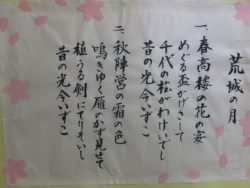 荒城の月
一、春高楼の花の宴
めぐる盃かげさして
千代の松がえわけいでし
昔の光今いずこ
二、秋陣営の霜の色
鳴きゆく雁のかず見せて
植うる剣にてりそいし
昔の光今いずこ